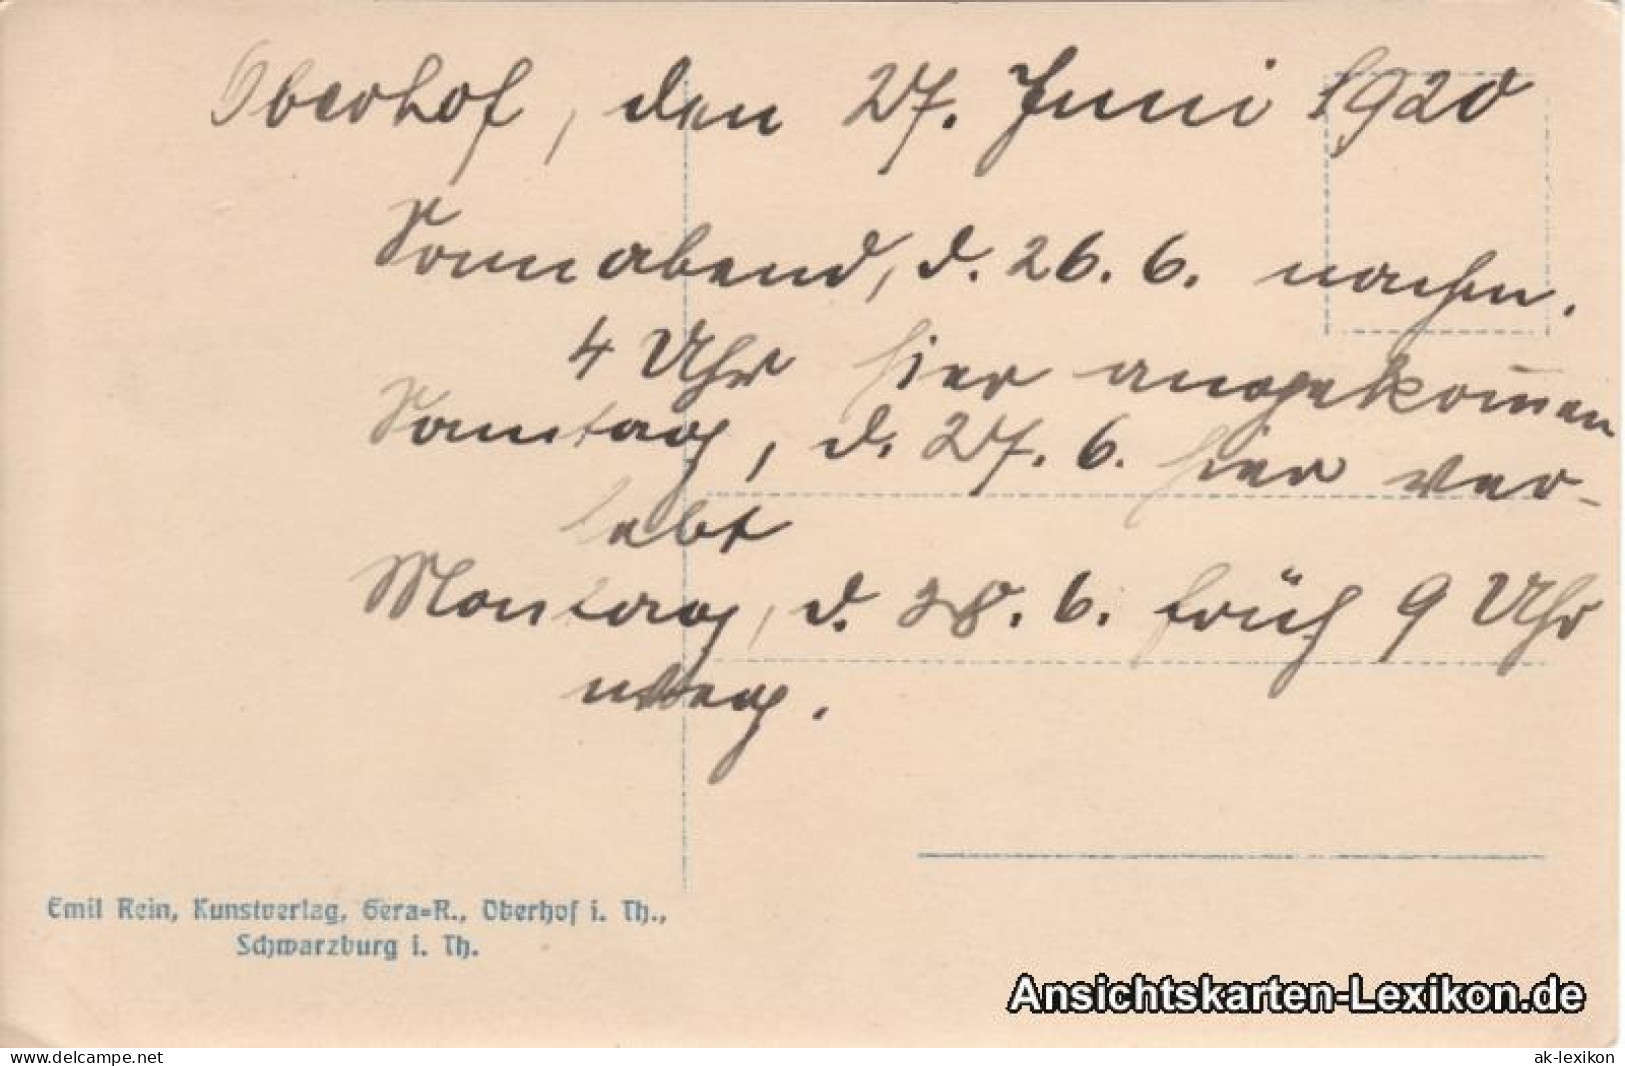 Oberhof, den 27. Juni 1920
Sonnabend, d. 26. 6. nachm.
4 Uhr hier angekom̅en
Sonntag, d. 27. 6. hier ver-
lebt
Montag, d. 28. 6. früh 9 Uhr
weg.
Emil Rein, Kunstverlag, Gera=R., Oberhof i. Th.,
Schwarzburg i. Th.
Ansichtskarten-Lexikon.de
www.delcampe.net
ak-lexikon